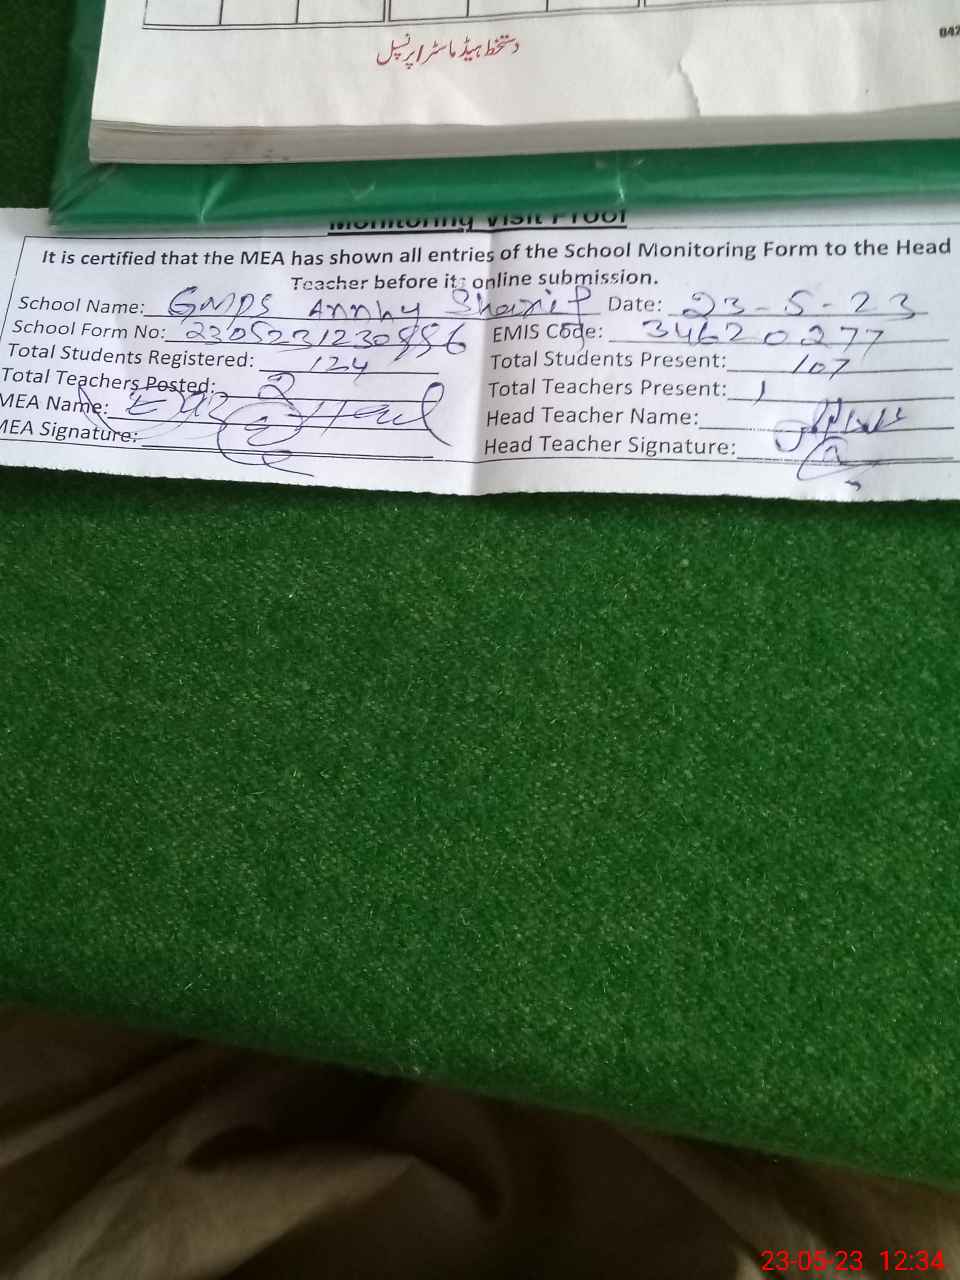 دستخط ہیڈ ماسٹر / پرنسپل
042
Monitoring Visit Proof
It is certified that the MEA has shown all entries of the School Monitoring Form to the Head
Teacher before its online submission.
School Name: GMPS Annhy Sharif Date: 23-5-23
School Form No: EMIS Code: 34620277
Total Students Registered: 124 Total Students Present: 107
Total Teachers Posted: 2 Total Teachers Present: 1
MEA Name: Head Teacher Name:
MEA Signature: Head Teacher Signature:
23-05-23 12:34